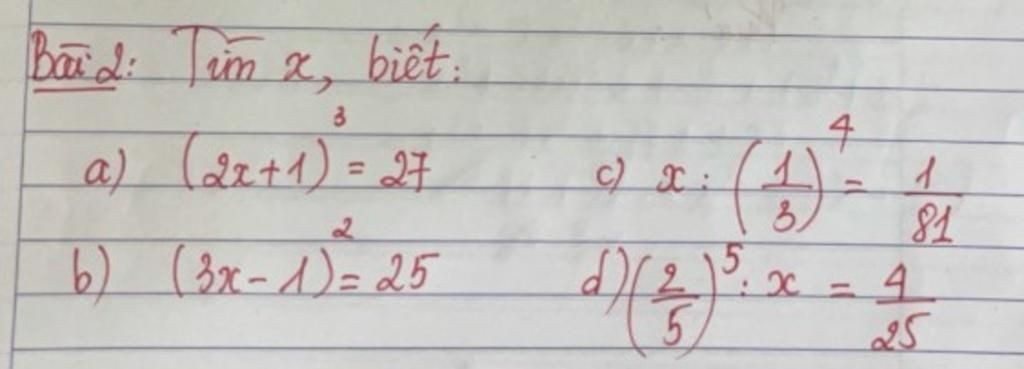 Bài 2: Tìm x, biết:
a) (2x+1)³ = 27
c) x : (1/3)⁴ = 1/81
b) (3x-1)² = 25
d) (2/5)⁵ : x = 4/25